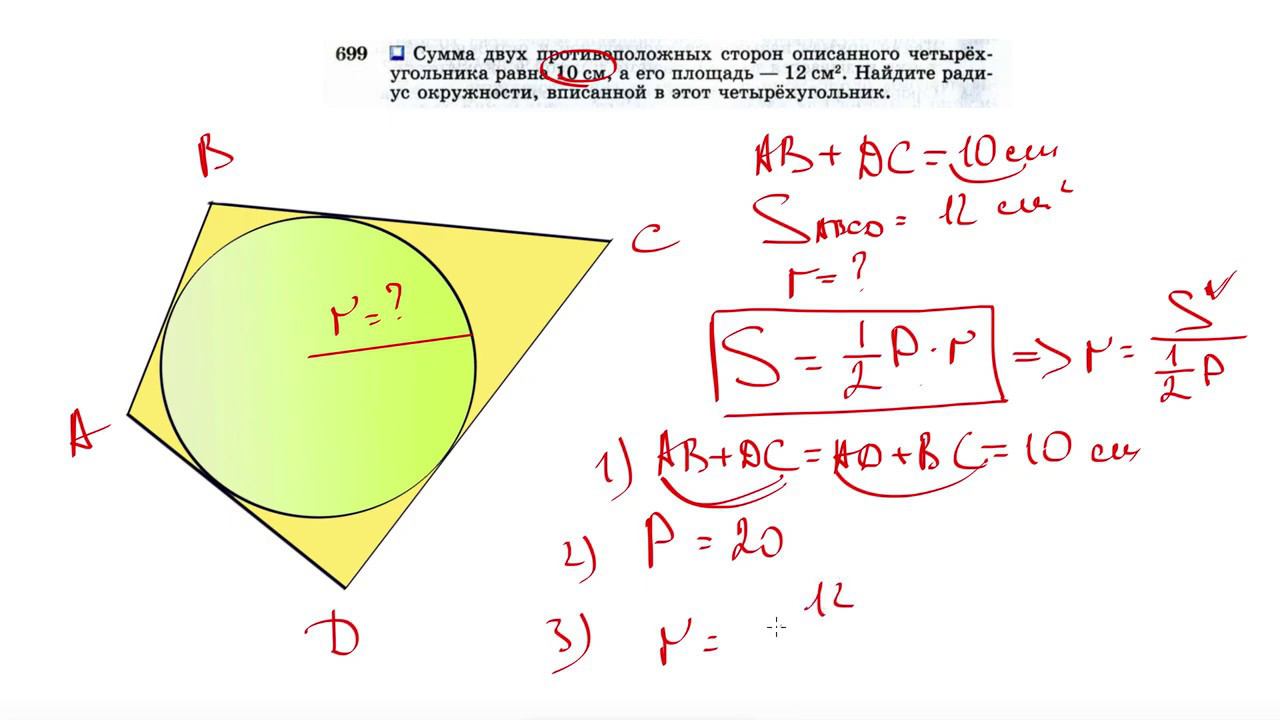 699 Сумма двух противоположных сторон описанного четырёх-
угольника равна 10 см, а его площадь — 12 см². Найдите ради-
ус окружности, вписанной в этот четырёхугольник.
B
AB + DC = 10 см
S ABCD = 12 см²
C
r = ?
r = ?
S = 1/2 P · r => r = S / 1/2 P
A
1) AB + DC = AD + BC = 10 см
2) P = 20
12
D
3) r =